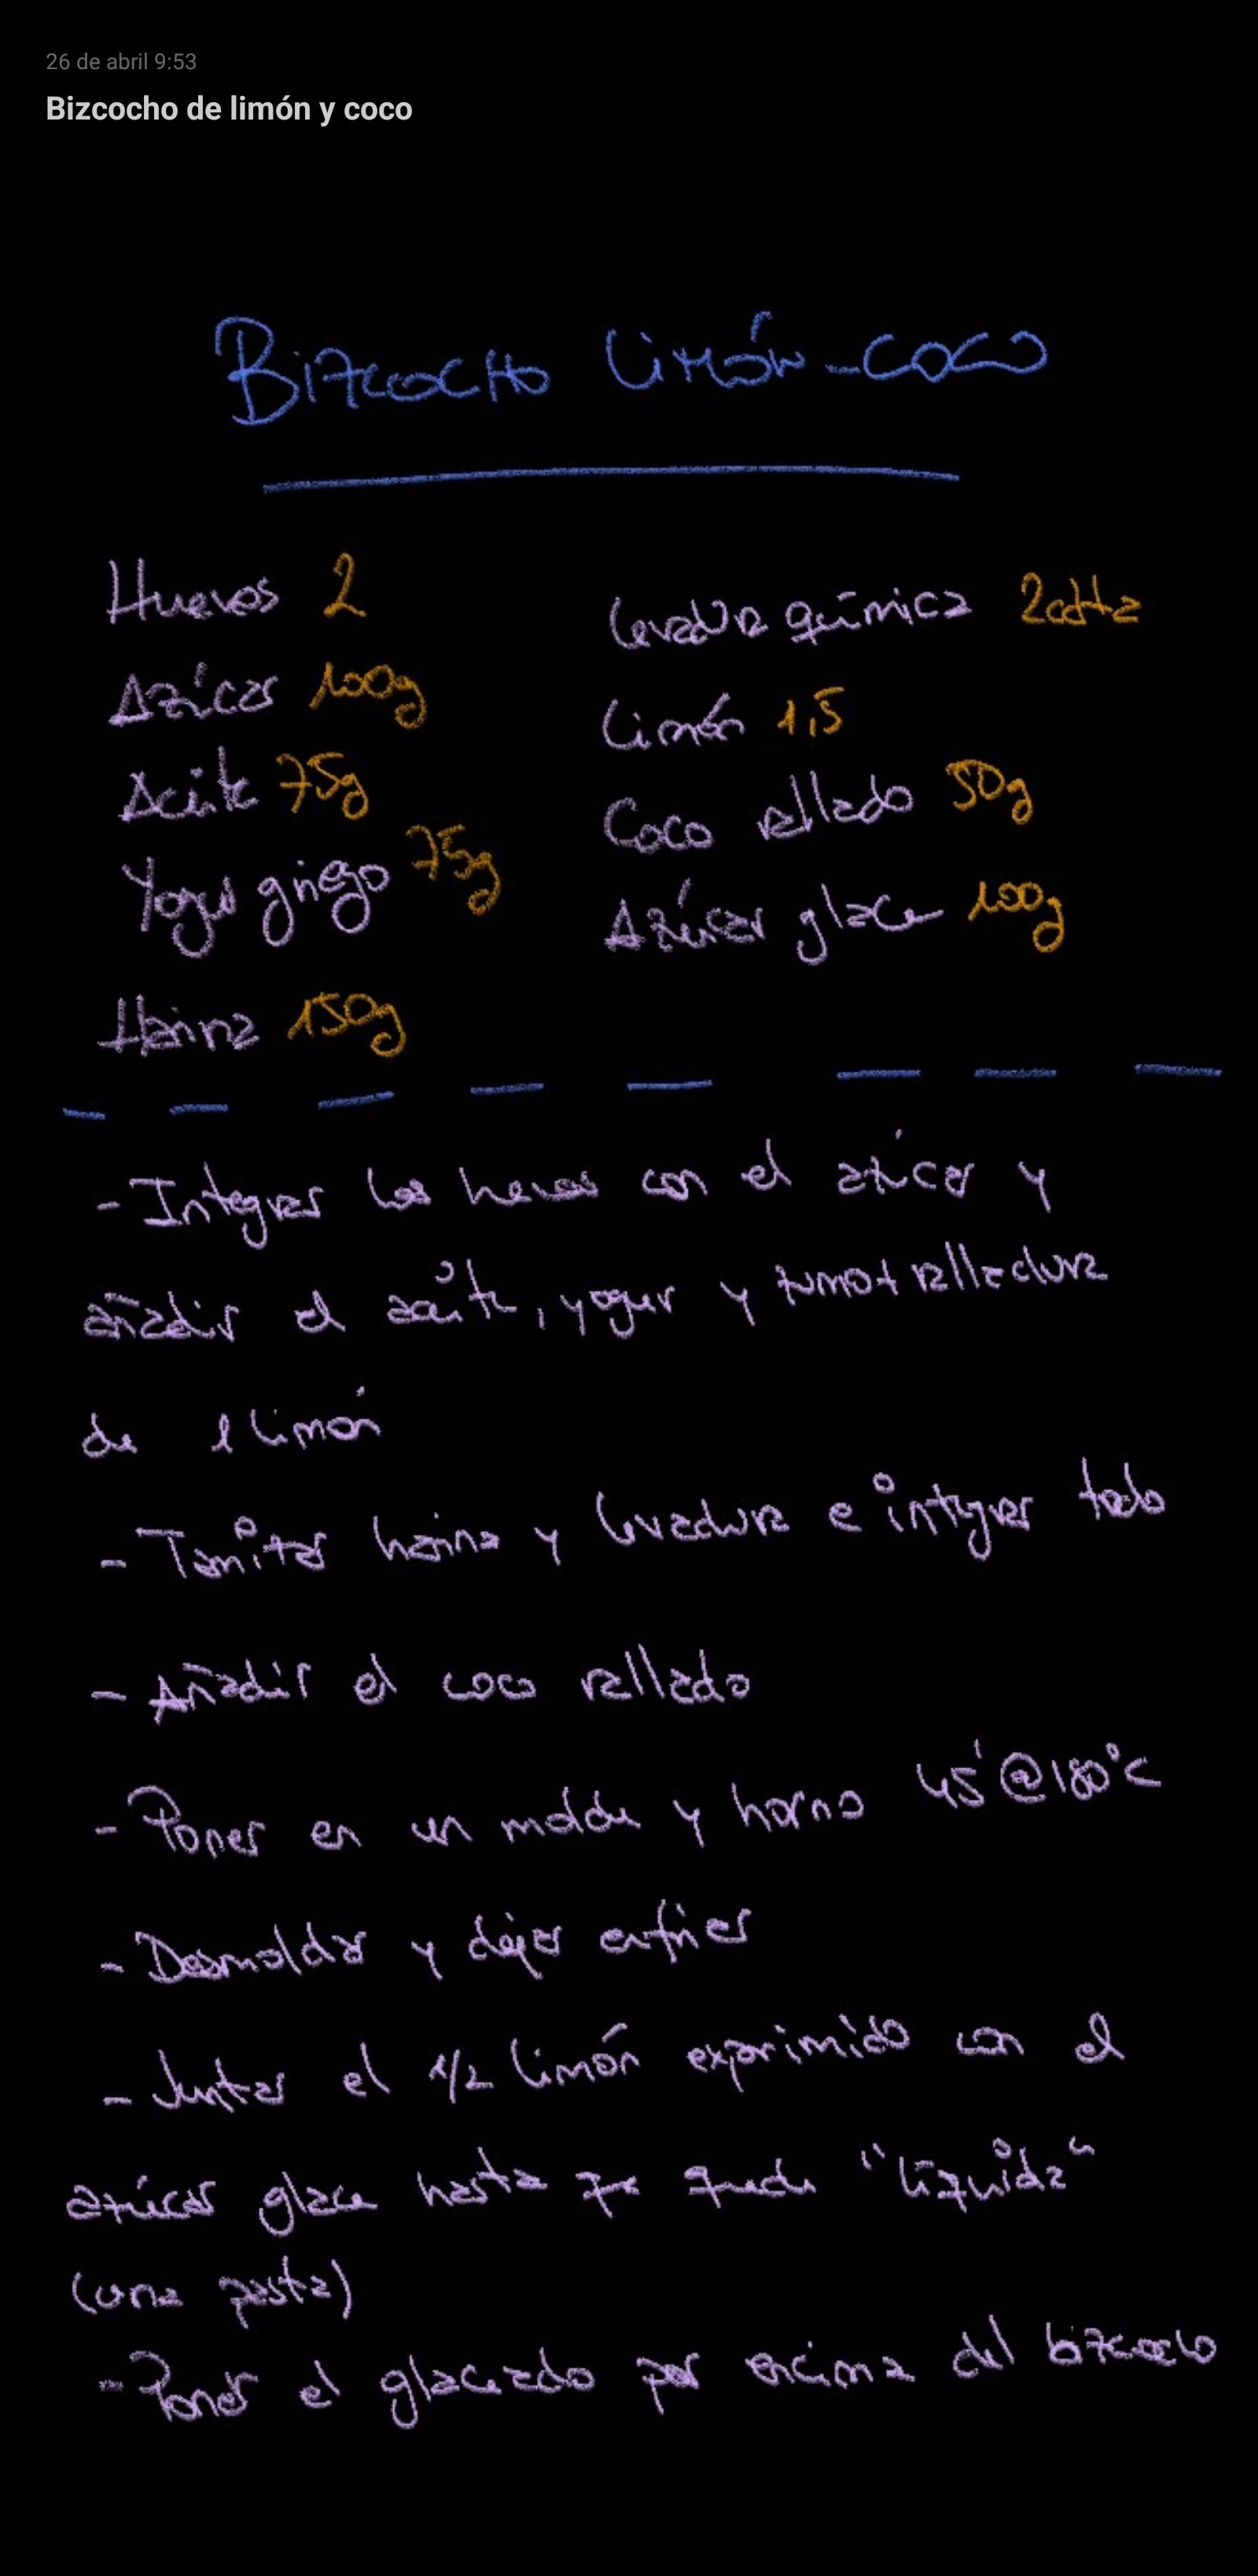 26 de abril 9:53
Bizcocho de limón y coco
Bizcocho Limón-coco
Huevos 2
Azúcar 100g
Aceite 75g
Yogur griego 75g
Harina 150g
levadura química 2cdta
Limón 1,5
Coco rallado 50g
Azúcar glace 100g
- Integrar los huevos con el azúcar y
añadir el aceite, yogur y zumo+ralladura
de 1 limón
- Tamitar harina y levadura e integrar todo
- Añadir el coco rallado
- Poner en un molde y horno 45' @180°C
- Desmoldar y dejar enfriar
- Juntar el 1/2 limón exprimido con el
azúcar glace hasta que quede "líquida"
(una pasta)
- Poner el glaceado por encima del bizcocho